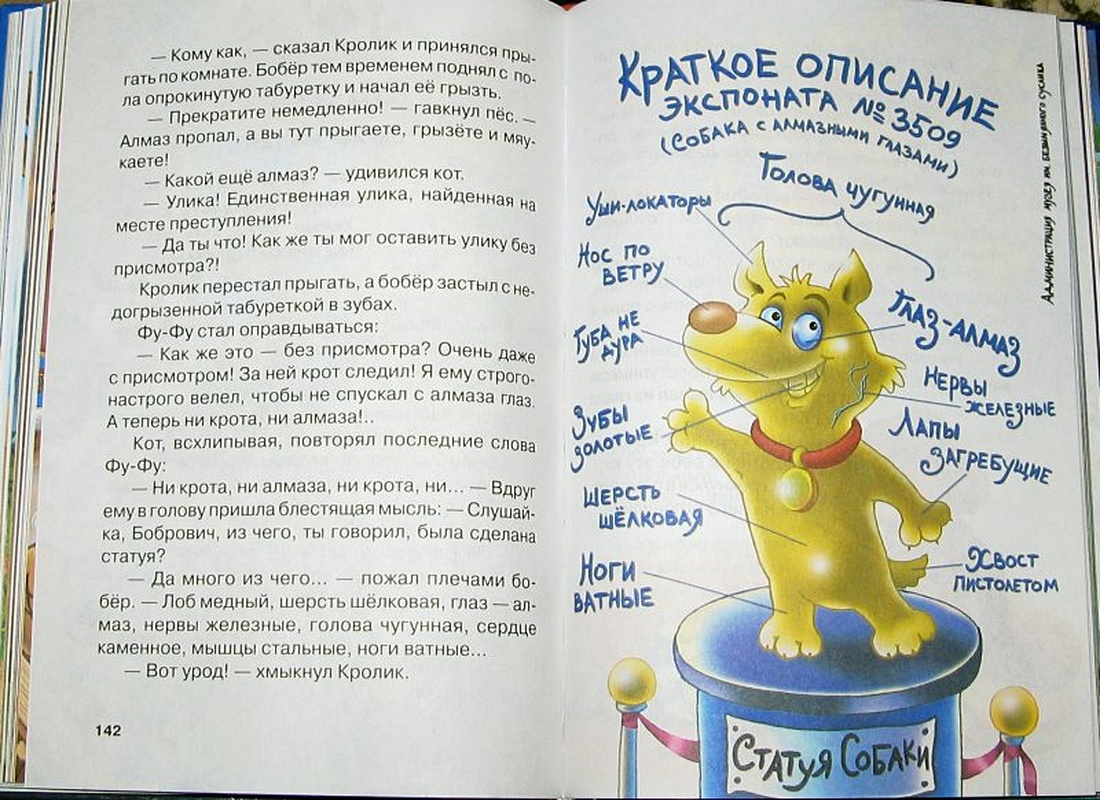 — Кому как, — сказал Кролик и принялся пры-
гать по комнате. Бобёр тем временем поднял с по-
ла опрокинутую табуретку и начал её грызть.
— Прекратите немедленно! — гавкнул пёс. —
Алмаз пропал, а вы тут прыгаете, грызёте и мяу-
каете!
— Какой ещё алмаз? — удивился кот.
— Улика! Единственная улика, найденная на
месте преступления!
— Да ты что! Как же ты мог оставить улику без
присмотра?!
Кролик перестал прыгать, а бобёр застыл с не-
догрызенной табуреткой в зубах.
Фу-Фу стал оправдываться:
— Как же это — без присмотра? Очень даже
с присмотром! За ней крот следил! Я ему строго-
настрого велел, чтобы не спускал с алмаза глаз.
А теперь ни крота, ни алмаза!..
Кот, всхлипывая, повторял последние слова
Фу-Фу:
— Ни крота, ни алмаза, ни крота, ни... — Вдруг
ему в голову пришла блестящая мысль: — Слушай-
ка, Бобрович, из чего, ты говорил, была сделана
статуя?
— Да много из чего... — пожал плечами бо-
бёр. — Лоб медный, шерсть шёлковая, глаз — ал-
маз, нервы железные, голова чугунная, сердце
каменное, мышцы стальные, ноги ватные...
— Вот урод! — хмыкнул Кролик.
142
Краткое описание
экспоната № 3509
(Собака с алмазными глазами)
Голова чугунная
Уши-локаторы
Нос по
ветру
Губа не
дура
Зубы
золотые
Шерсть
шёлковая
Ноги
ватные
Глаз-алмаз
Нервы
железные
Лапы
загребущие
Хвост
пистолетом
Статуя Собаки
Администрация музея им. Безымянного суслика